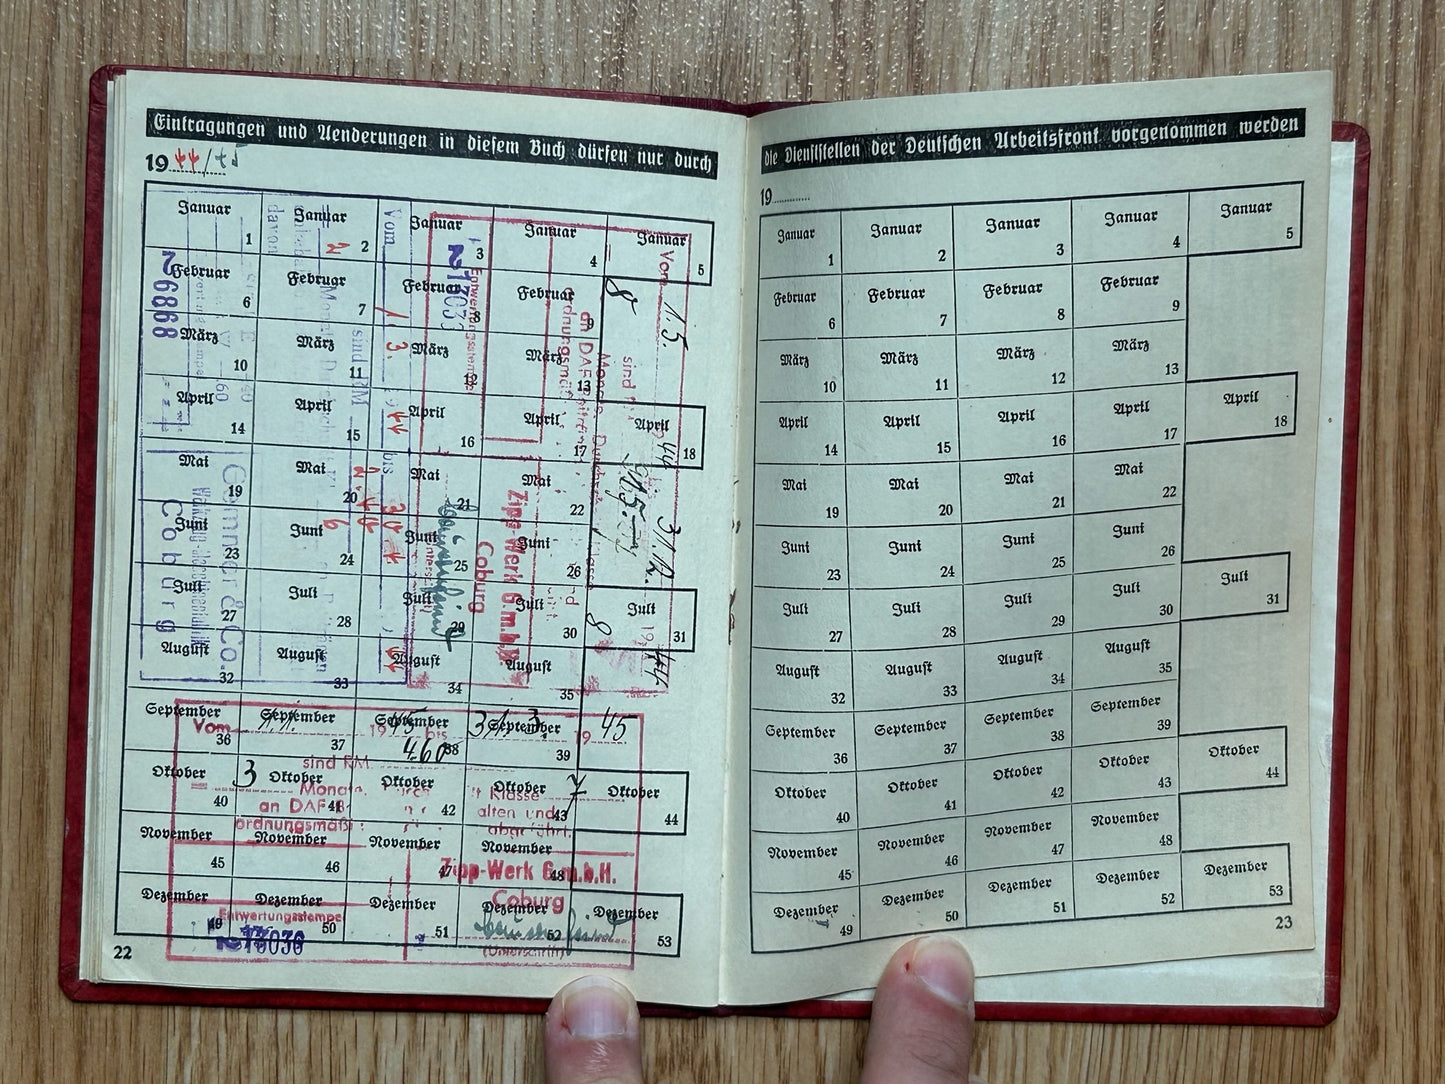 Eintragungen und Aenderungen in diesem Buch dürfen nur durch
1944/45
Januar 1 Januar 2 Januar 3 Januar 4 Januar 5
Februar 6 Februar 7 Februar 8 Februar 9
März 10 März 11 März 12 März 13
April 14 April 15 April 16 April 17 April 18
Mai 19 Mai 20 Mai 21 Mai 22
Juni 23 Juni 24 Juni 25 Juni 26
Juli 27 Juli 28 Juli 29 Juli 30 Juli 31
August 32 August 33 August 34 August 35
September 36 September 37 September 38 September 39
Oktober 40 Oktober 41 Oktober 42 Oktober 43 Oktober 44
November 45 November 46 November 47 November 48
Dezember 49 Dezember 50 Dezember 51 Dezember 52 Dezember 53
26868
Conner & Co.
Coburg
Vom 1.3. 44 bis 30.4. 44
sind RM
Vom 1.5. 44 bis 31.12. 1944
sind RM
8
an DAF
Zipp-Werk G.m.b.H.
Coburg
Entwertungsstempel
Vom 1.1. 1945 bis 31.3. 1945
sind RM 4.60
3 Monate durch 7 Klasse
an DAF
ordnungsmäßig abgeführt.
Zipp-Werk G.m.b.H.
Coburg
Entwertungsstempel
(Unterschrift)
22
die Dienststellen der Deutschen Arbeitsfront vorgenommen werden
19
Januar 1 Januar 2 Januar 3 Januar 4 Januar 5
Februar 6 Februar 7 Februar 8 Februar 9
März 10 März 11 März 12 März 13
April 14 April 15 April 16 April 17 April 18
Mai 19 Mai 20 Mai 21 Mai 22
Juni 23 Juni 24 Juni 25 Juni 26
Juli 27 Juli 28 Juli 29 Juli 30 Juli 31
August 32 August 33 August 34 August 35
September 36 September 37 September 38 September 39
Oktober 40 Oktober 41 Oktober 42 Oktober 43 Oktober 44
November 45 November 46 November 47 November 48
Dezember 49 Dezember 50 Dezember 51 Dezember 52 Dezember 53
23